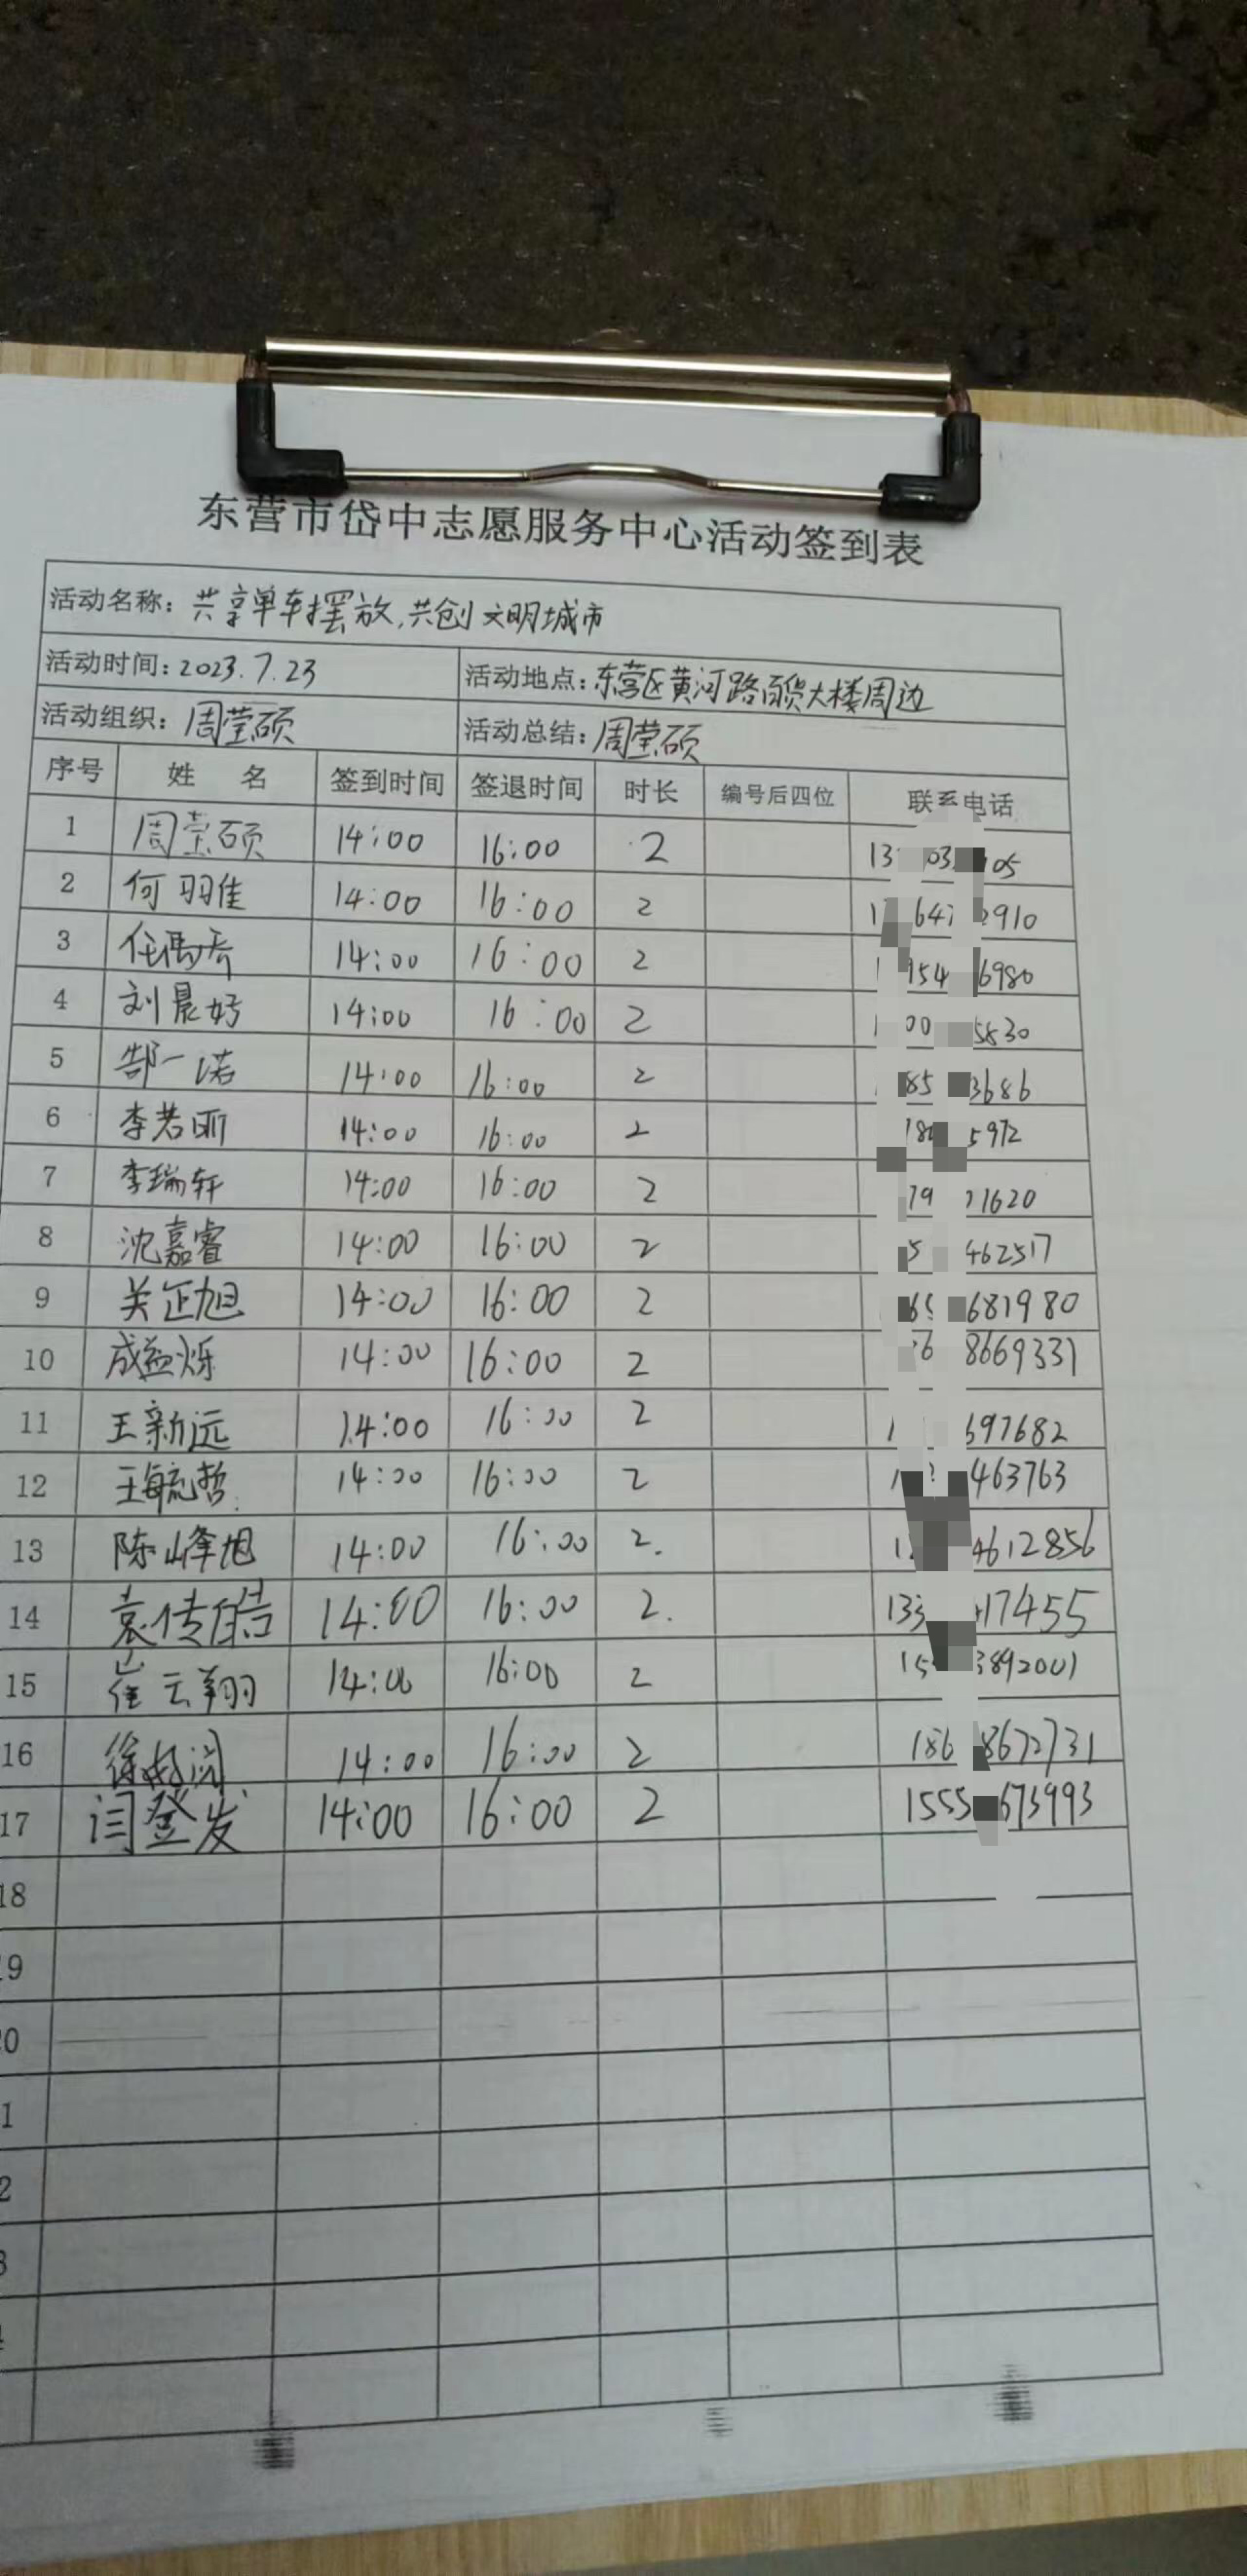 东营市岱中志愿服务中心活动签到表
活动名称：共享单车摆放，共创文明城市
活动时间：2023.7.23 活动地点：东营区黄河路百货大楼周边
活动组织：周莹硕 活动总结：周莹硕
序号 姓 名 签到时间 签退时间 时长 编号后四位 联系电话
1 周莹硕 14:00 16:00 2 05
2 何羽佳 14:00 16:00 2 2910
3 14:00 16:00 2 954 6980
4 刘晨好 14:00 16:00 2 00 5830
5 郜一诺 14:00 16:00 2 85 3686
6 李若昕 14:00 16:00 2 5972
7 李瑞轩 14:00 16:00 2 79 1620
8 沈嘉睿 14:00 16:00 2 5 462517
9 关正旭 14:00 16:00 2 65 681980
10 成益烁 14:00 16:00 2 6 8669331
11 王新远 14:00 16:00 2 1 697682
12 王毓哲 14:00 16:00 2 1 463763
13 陈峰旭 14:00 16:00 2. 1 4612856
14 袁传皓 14:00 16:00 2. 133 17455
15 崔云翔 14:00 16:00 2 15 3892001
16 14:00 16:00 2 186 8672731
17 闫登发 14:00 16:00 2 1555 673993
18